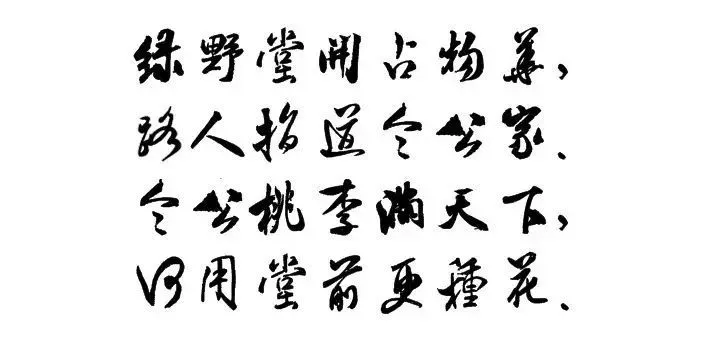 绿野堂開占物華,
路人指道令公家.
令公桃李満天下,
何用堂前更種花.